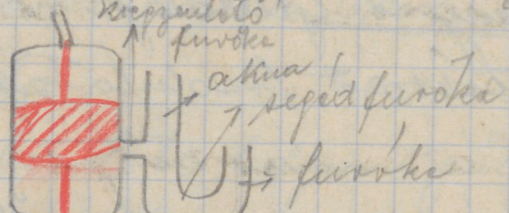 kiegyenlítő
furóka
akna
segédfuróka
furóka